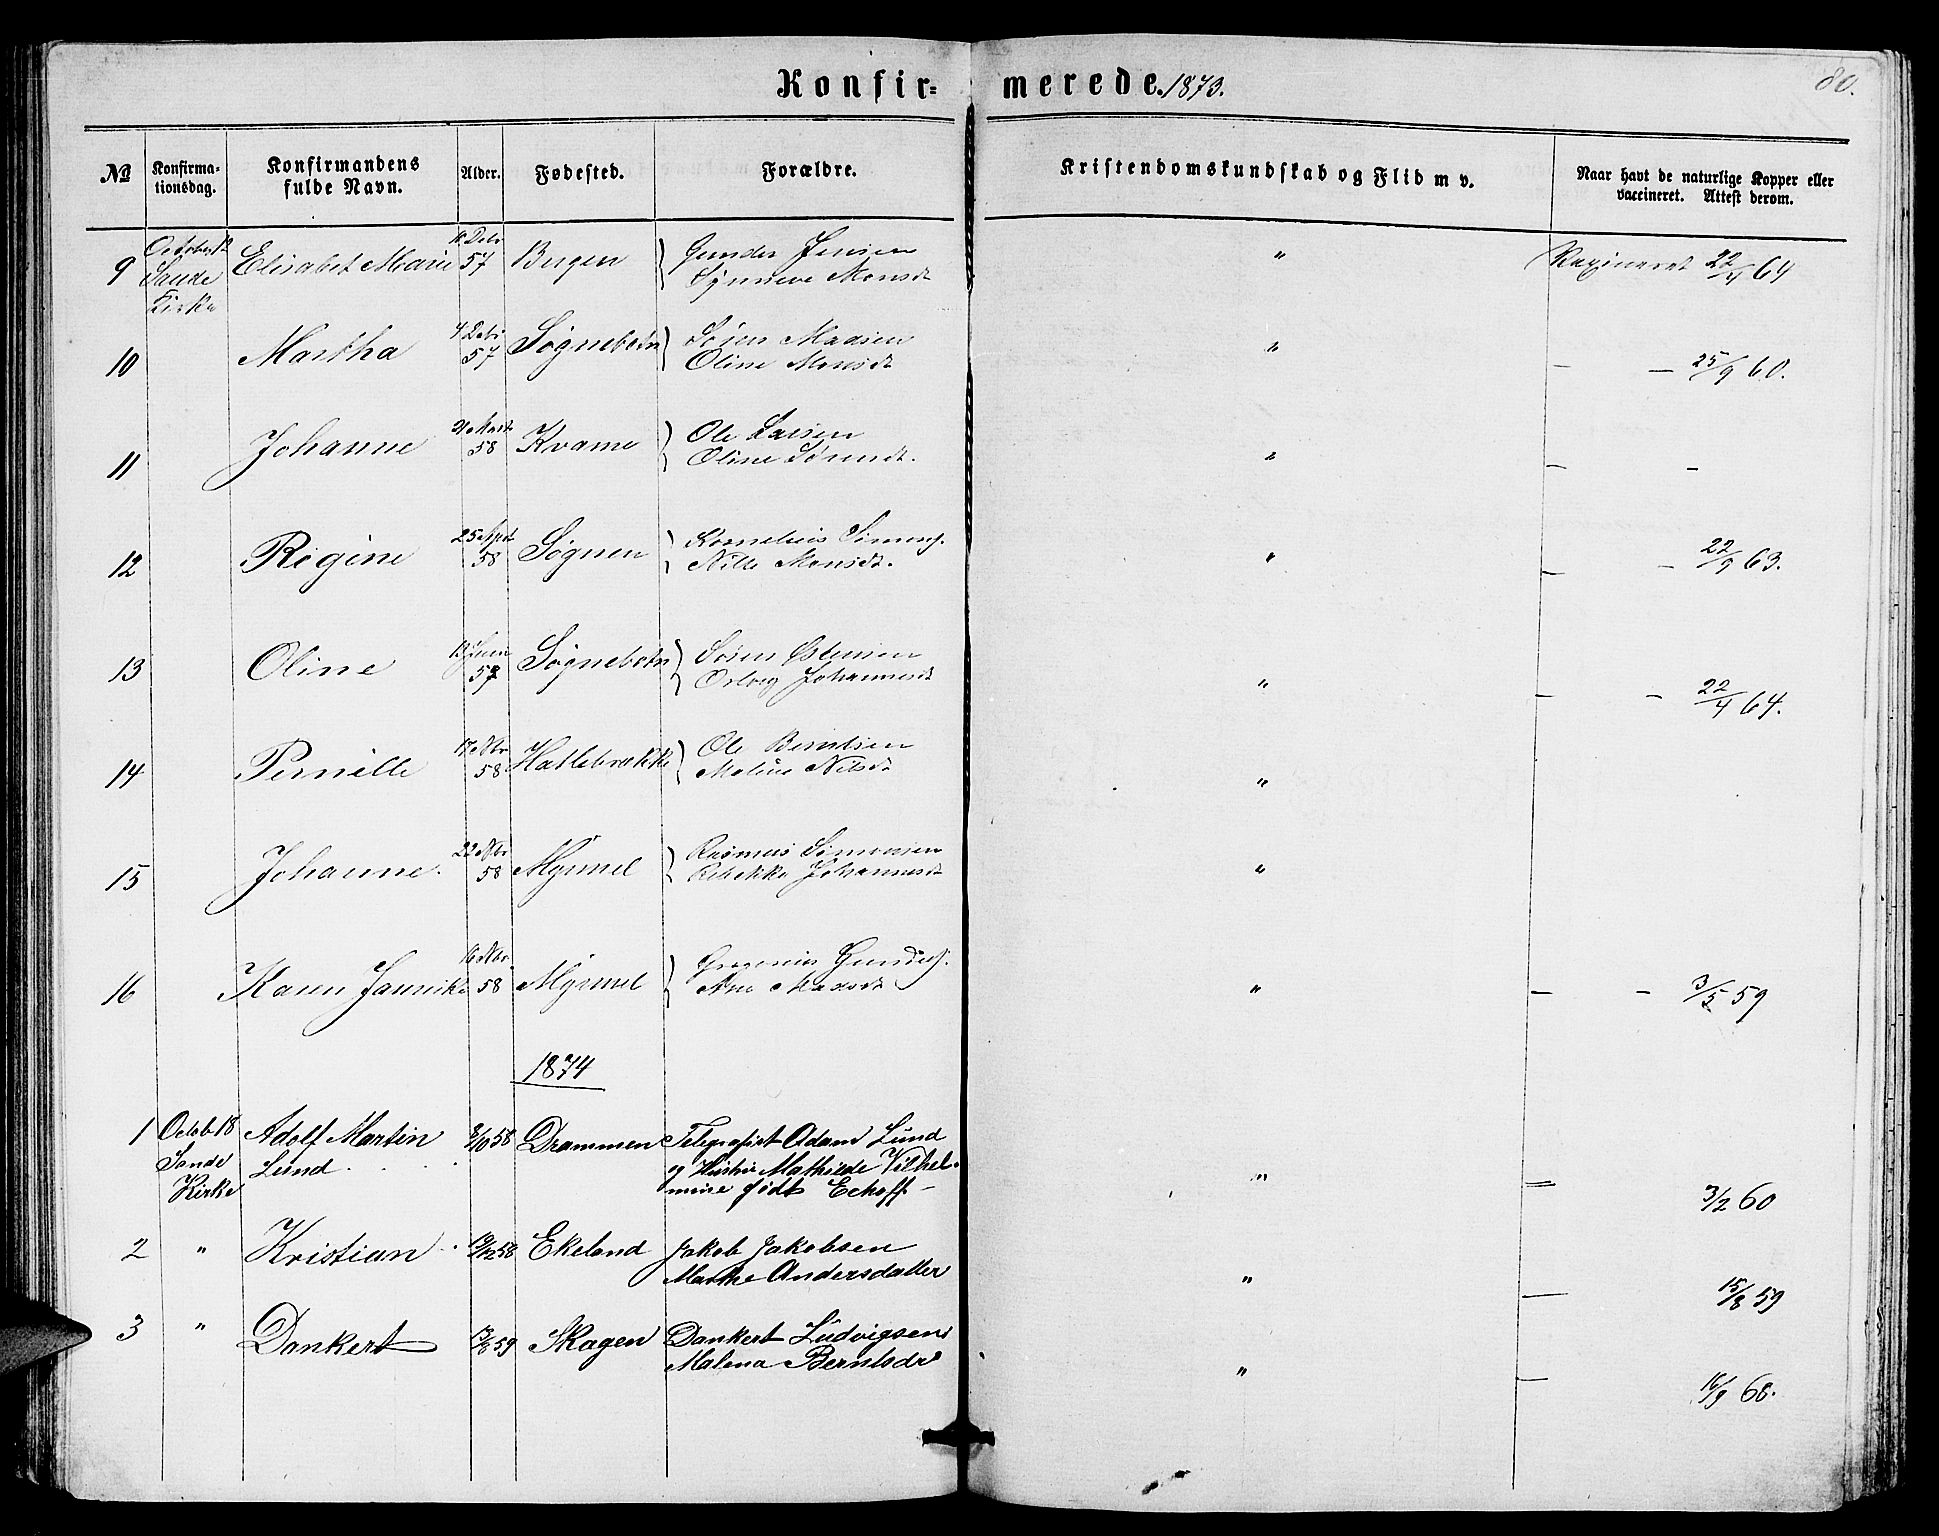 Konfir= merede. 1873. 80.
No Konfirma-tionsdag. Konfirmandens fulde Navn. Alder. Fødested. Forældre. Kristendomskundskab og Flid m v. Naar havt de naturlige Kopper eller vaccineret. Attest derom.
9 October 12 Sande Kirke Elisabet Marie 57 Bergen Gunder Jensen " 22/4 64
Synneve Monsdt
10 Martha 4 Debr 57 Søgnebotn Søren Madsen " — — 25/9 60.
Oline Monsdt
11 Johanne 21 Marts 58 Kvame Ole Larsen " — —
Oline Sørensdt.
12 Regine 25 Sept 58 Søgnen Kornelius Simensj. " — — 22/9 63.
Nille Monsdt.
13 Oline 57 Søgnebotn Søren Østensen " — — 22/4 64.
Johannesdt
14 Pernille 17 Nbr 58 Hatlebrække Ole Berntsen "
Maline Nilsdt
15 Johanne. 22 Nbr 58 Myrmel Rasmus Simonsen "
Rebekka Johannesdt
16 Karen Janrike 16 Nbr. 58 Myrmel Gregorius Gundersj. " — — 3/5 59
Ane Madsdt
1874
1 Octob 18 Sande Kirke Adolf Martin Lund 8/10 58 Drammen Telegrafist Adam Lund " — 3/2 60
og Hustru Mathilde Vilhel-
mine født Echoff —
2 " Kristian 19/12 58 Ekeland Jakob Jakobsen " — 15/8 59
Marthe Andersdatter
3 " Dankert 13/8 59 Skagen Dankert Ludvigsen " — 16/9 68.
Malena Berntsdr